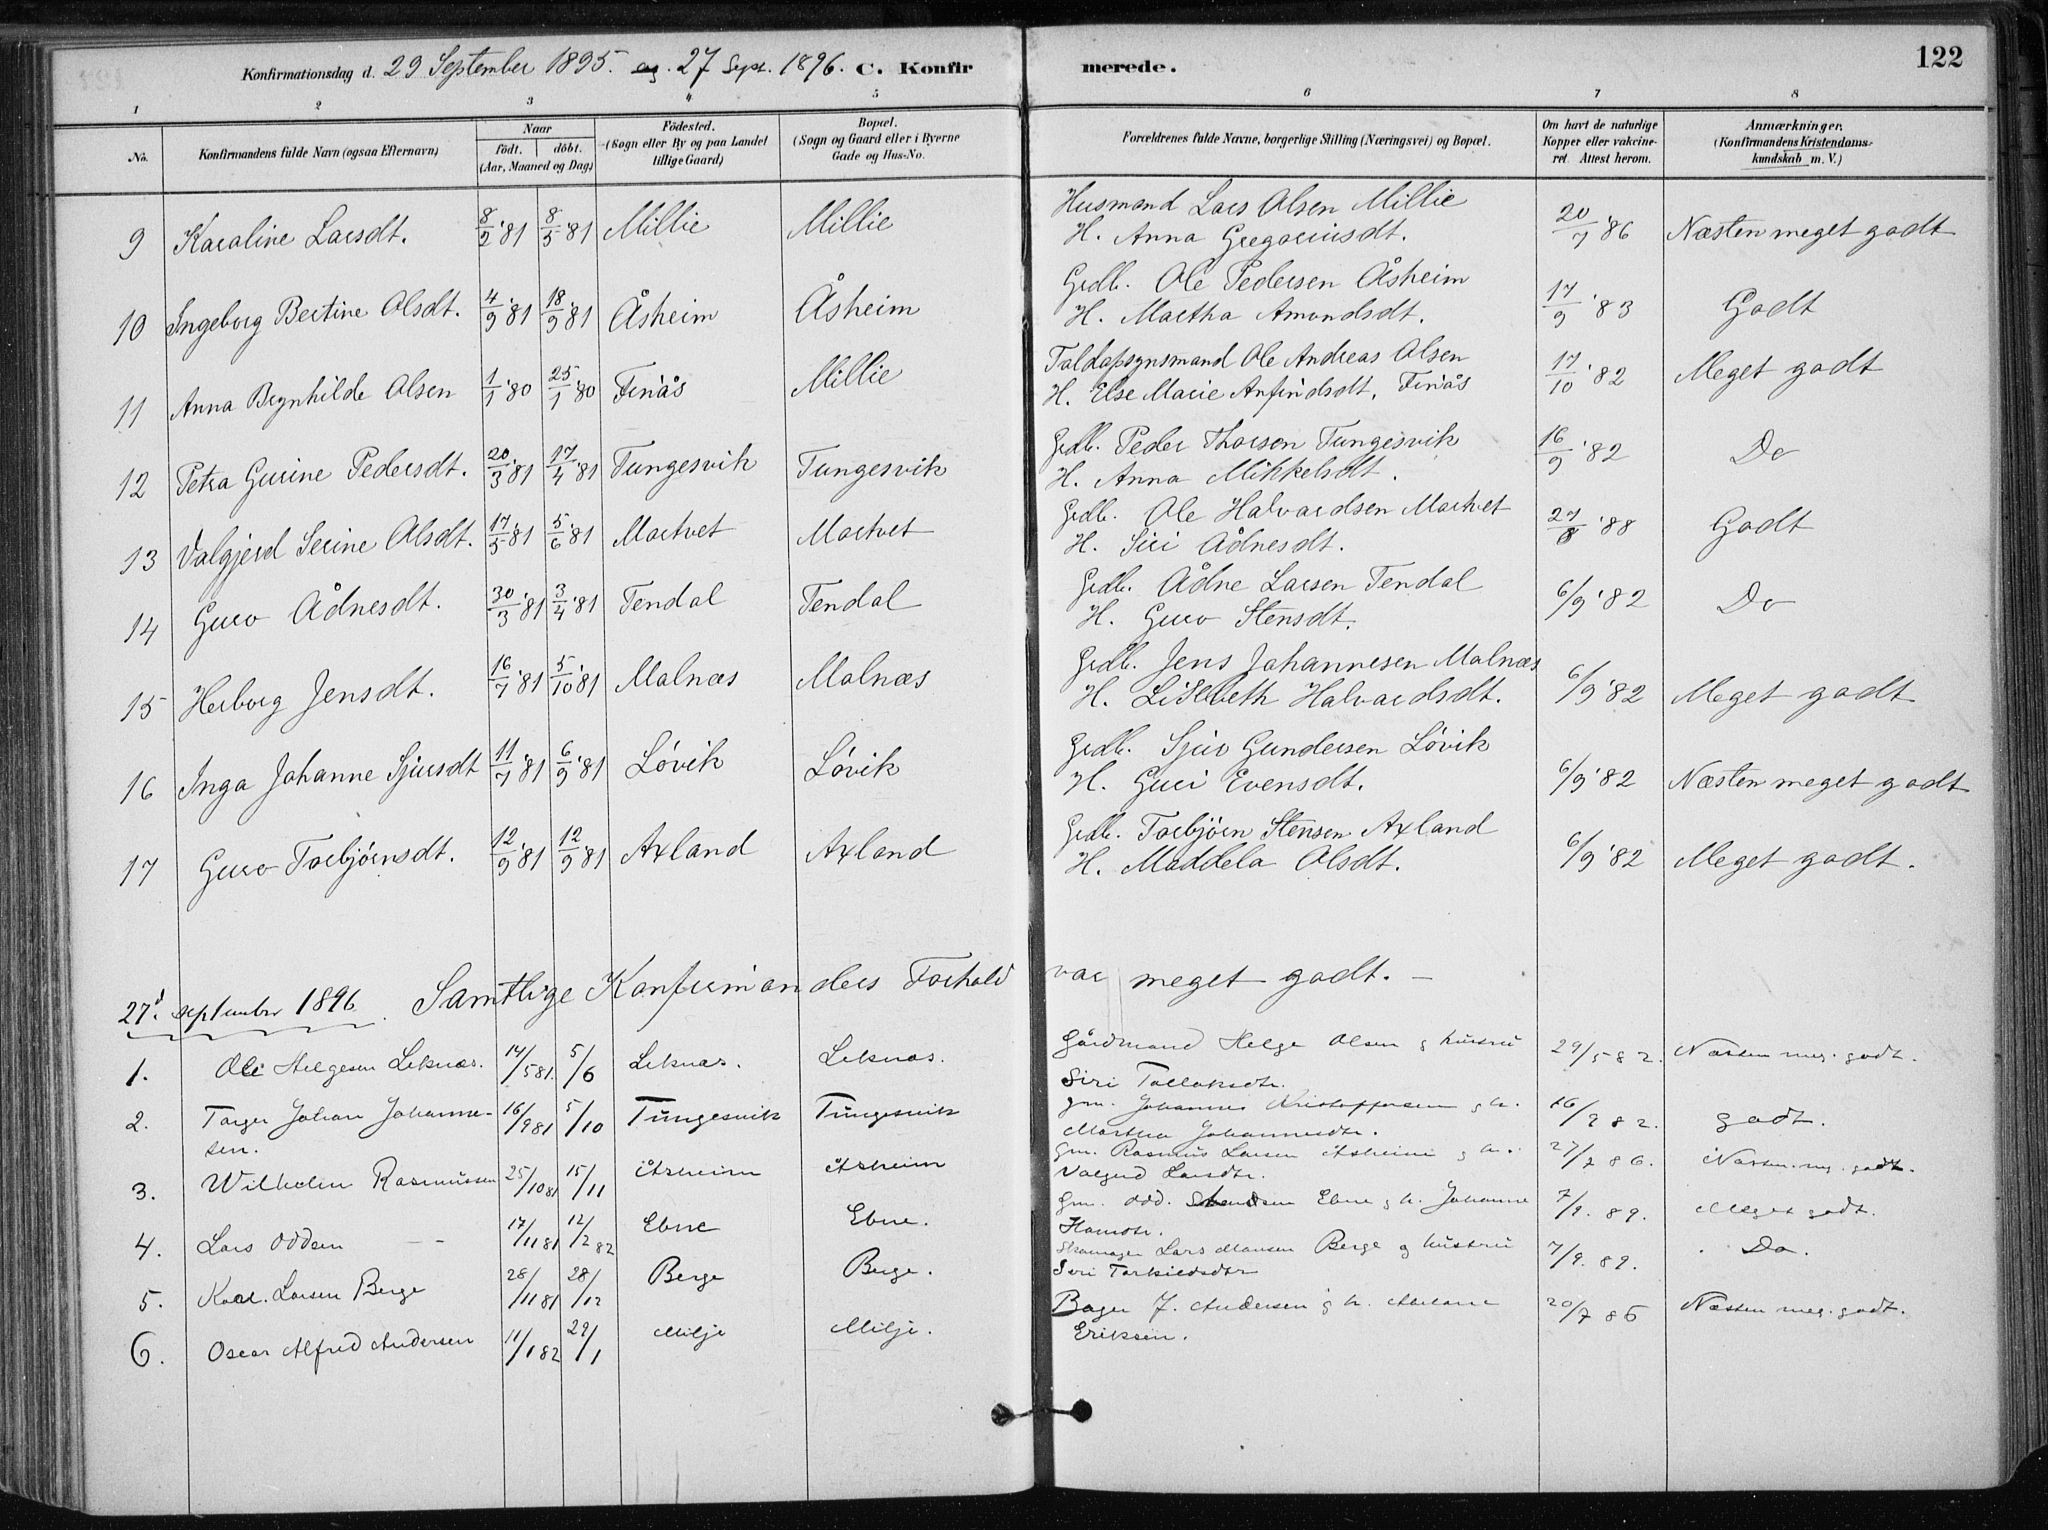 Konfirmationsdag d. 29 September 1895. og. 27 Sept. 1896. C. Konfirmerede. 122
1 2 3 4 5 6 7 8
No. Konfirmandens fulde Navn (ogsaa Efternavn) Naar født. døbt. (Aar, Maaned og Dag) Födested. (Sogn eller By og paa Landet tillige Gaard) Bopæl. (Sogn og Gaard eller i Byerne Gade og Hus-No. Forældrenes fulde Navne, borgerlige Stilling (Næringsvei) og Bopæl. Om havt de naturlige Kopper eller vakcineret. Attest herom. Anmærkninger. (Konfirmandens Kristendomskundskab m. V.)
9 Karaline Larsdt. 8/2 '81 8/5 '81 Millie Millie Husmand Lars Olsen Millie 20/7 '86 Næsten meget godt
H. Anna Gregoriusdt.
10 Ingeborg Bertine Olsdt. 4/9 '81 18/9 '81 Åsheim Åsheim Grdb. Ole Pedersen Åsheim 17/9 '83 Godt
H. Martha Amundsdt.
11 Anna Brynhilde Olsen 1/1 '80 25/1 '80 Finås Millie Toldopsynsmand Ole Andreas Olsen 17/10 '82 Meget godt
H. Else Marie Anfindsdt, Finås
12 Petra Gurine Pedersdt. 20/3 '81 17/4 '81 Tungesvik Tungesvik Grdb. Peder Thorsen Tungesvik 16/9 '82 Do
H. Anna Mikkelsdt.
13 Valgjerd Serine Olsdt. 17/5 '81 5/6 '81 Martvet Martvet Grdb. Ole Halvardsen Martvet 27/8 '88 Godt
H. Siri Ådnesdt.
14 Guro Ådnesdt. 30/3 '81 3/4 '81 Tendal Tendal Grdb. Ådne Larsen Tendal 6/9 '82 Do
H. Guro Stensdt.
15 Herborg Jensdt. 16/7 '81 5/10 '81 Malnæs Malnæs Grdb. Jens Johannesen Malnæs 6/9 '82 Meget godt
H. Lisebeth Halvardsdt.
16 Inga Johanne Sjursdt 11/7 '81 6/9 '81 Løvik Løvik Grdb. Sjur Gundersen Løvik 6/9 '82 Næsten meget godt
H. Guri Evensdt.
17 Guro Torbjørnsdt. 12/9 '81 12/9 '81 Axland Axland Grdb. Torbjørn Stensen Axland 6/9 '82 Meget godt.
H. Maddela Olsdt.
27d september 1896. Samtlige Konfirmanders Forhold var meget godt. —
1. Ole Helgesen Leknæs. 14/5 81. 5/6 Leknæs. Leknæs. Gårdmand Helge Olsen g hustru 29/5 82. Næsten meg. godt.
Siri Tollaksdtr.
2. Torger Johan Johanne- 16/9 81 5/10 Tungesvik Tungesvik gm. Johannes Kristoffersen g h. 16/9 82. godt.
sen. Martha Johannesdtr.
3. Wilhelm Rasmussen 25/10 81 15/11 Åsheim Åsheim Gm. Rasmus Larsen Åsheim g h. 27/7 86. Næsten meg. godt.
Valgerd Larsdtr.
4. Lars Oddsen 17/11 81 12/2 82 Ebne Ebne. Gm. Odd. Ebne g h. Johanne 7/9. 89. Meget godt.
5. Karl. Larsen Berge 28/11 81 28/12 Berge Berge. Skomager Lars Monsen Berge g hustru 7/9. 89. Do.
Siri Torkildsdtr
6. Oscar Alfred Andersen 11/1 82 29/1 Milje Milje. Bager J. Andersen g h. 20/7 86 Næsten meg. godt.
Eriksen.